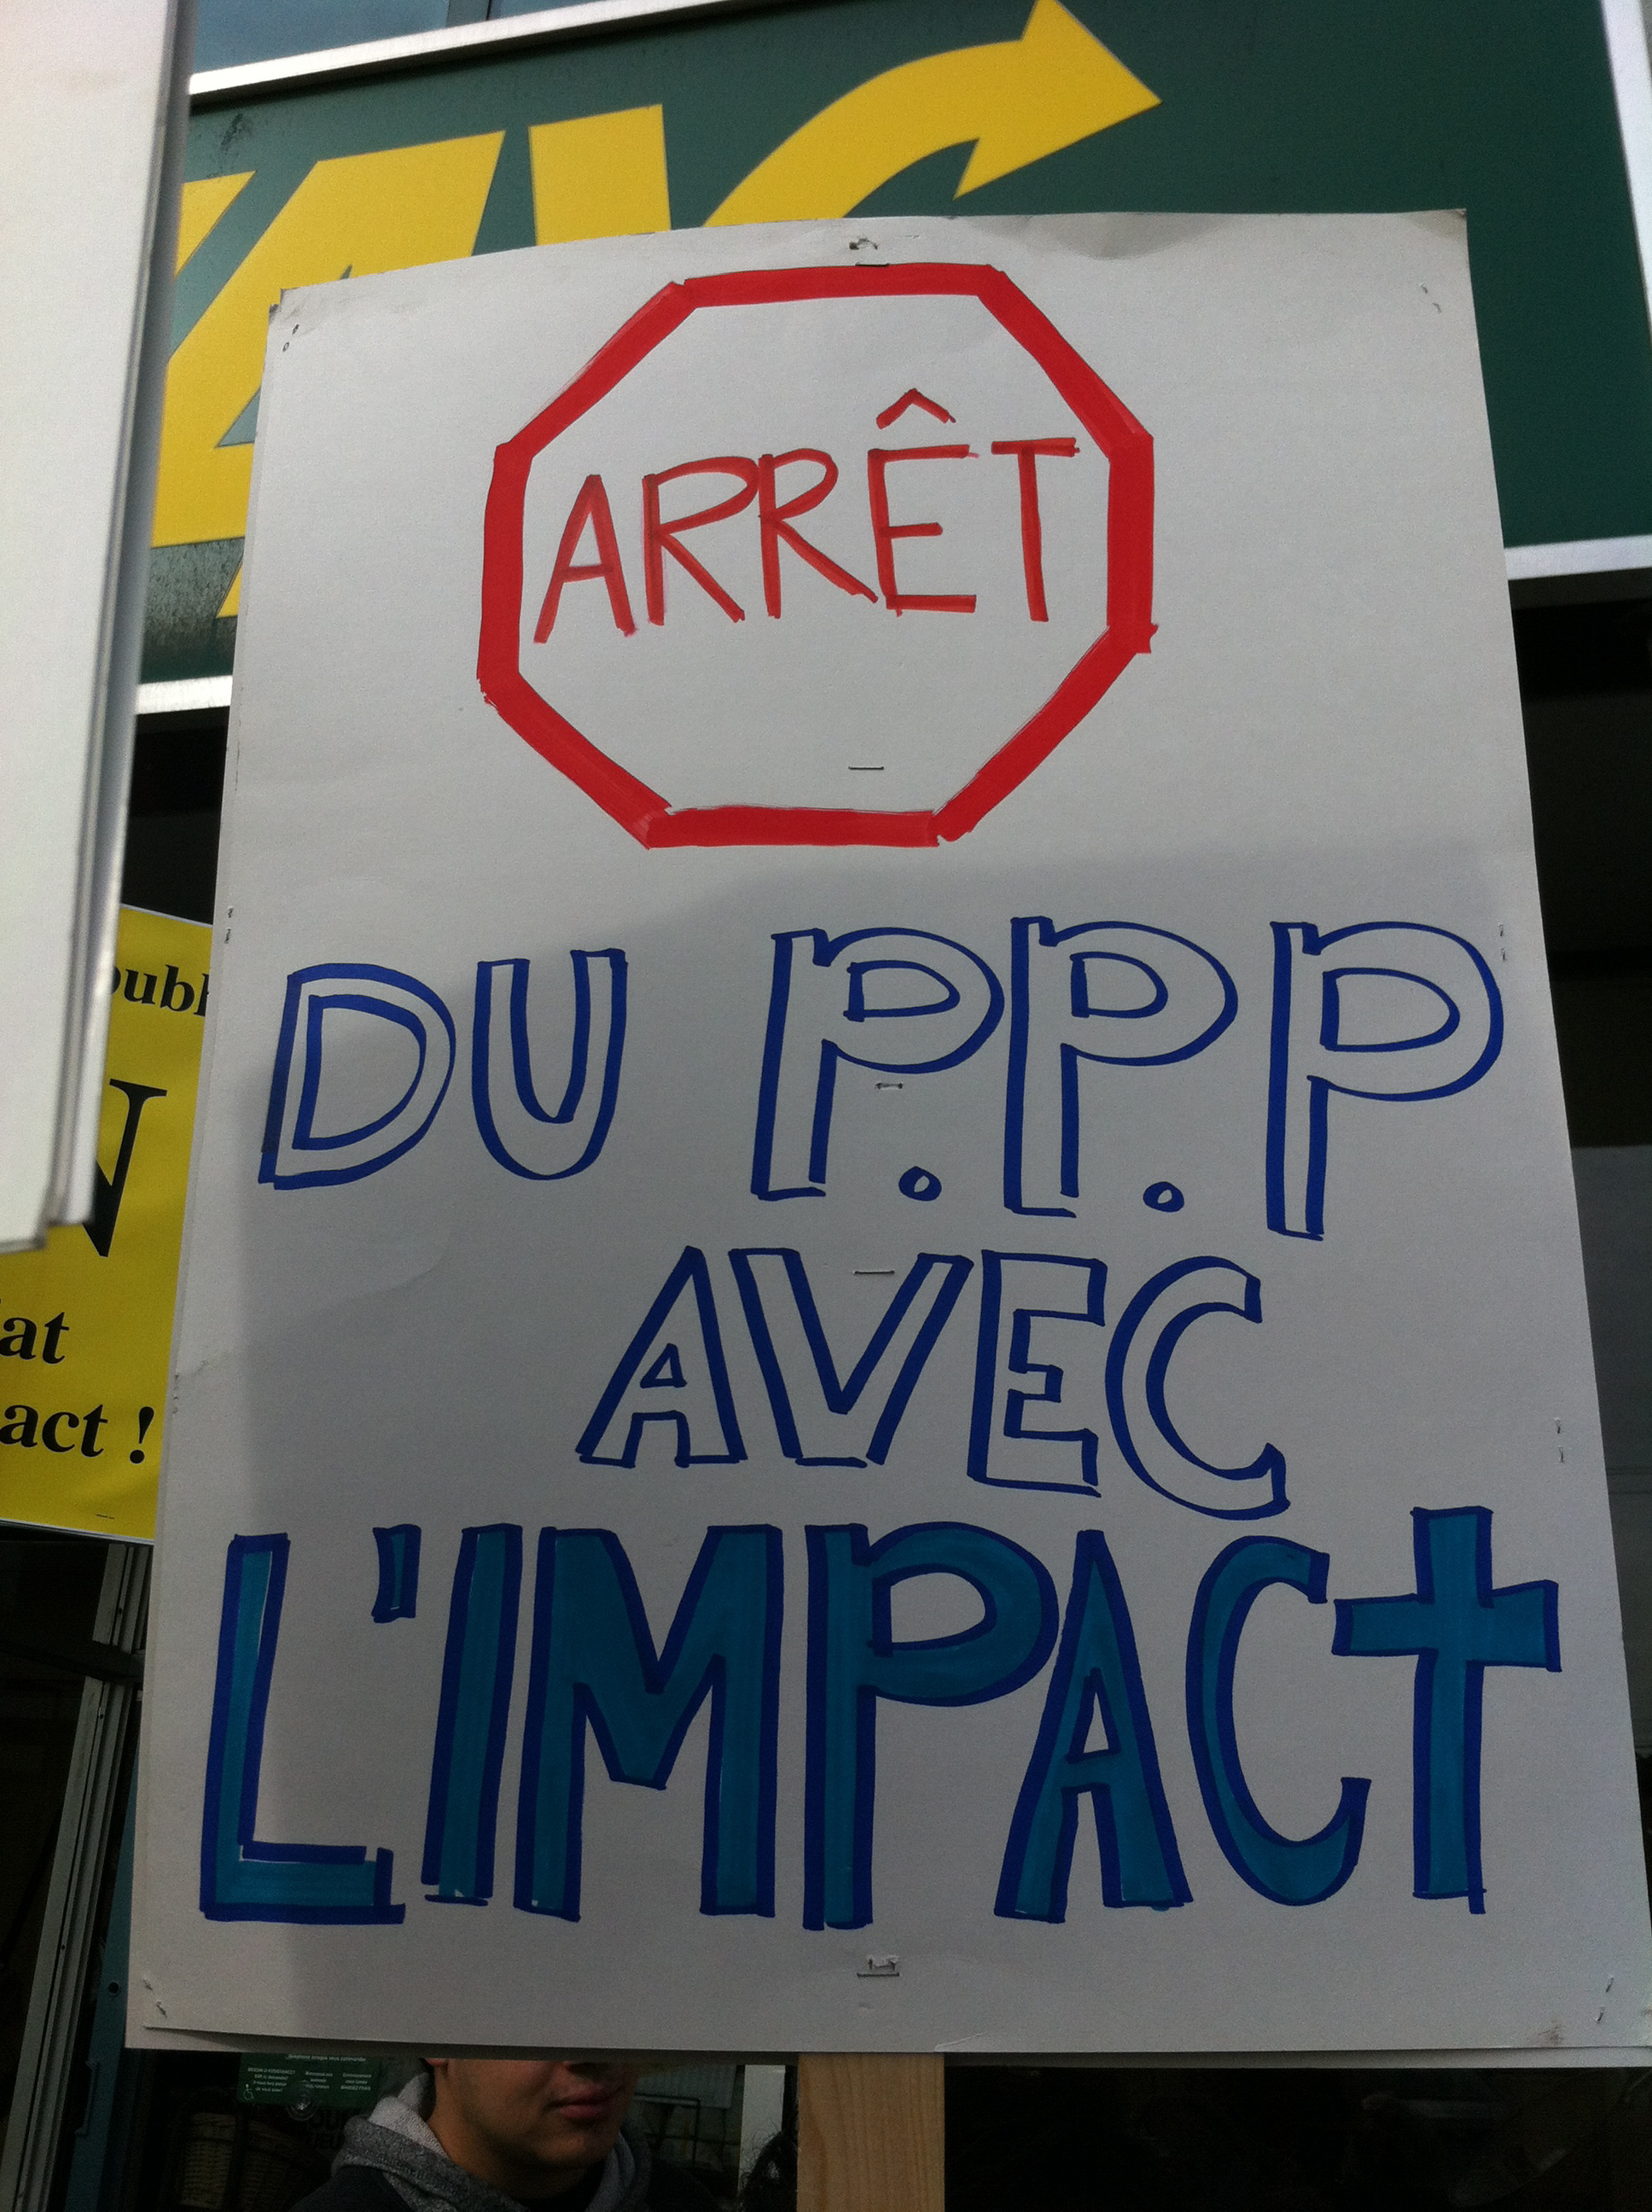 ARRÊT
DU P.P.P
AVEC
L'IMPACT
N
act !